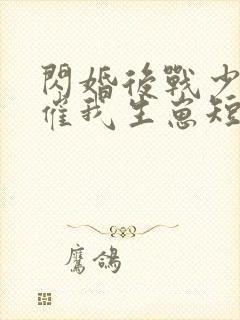 閃婚後戰少
催我生崽短
鷹鴿